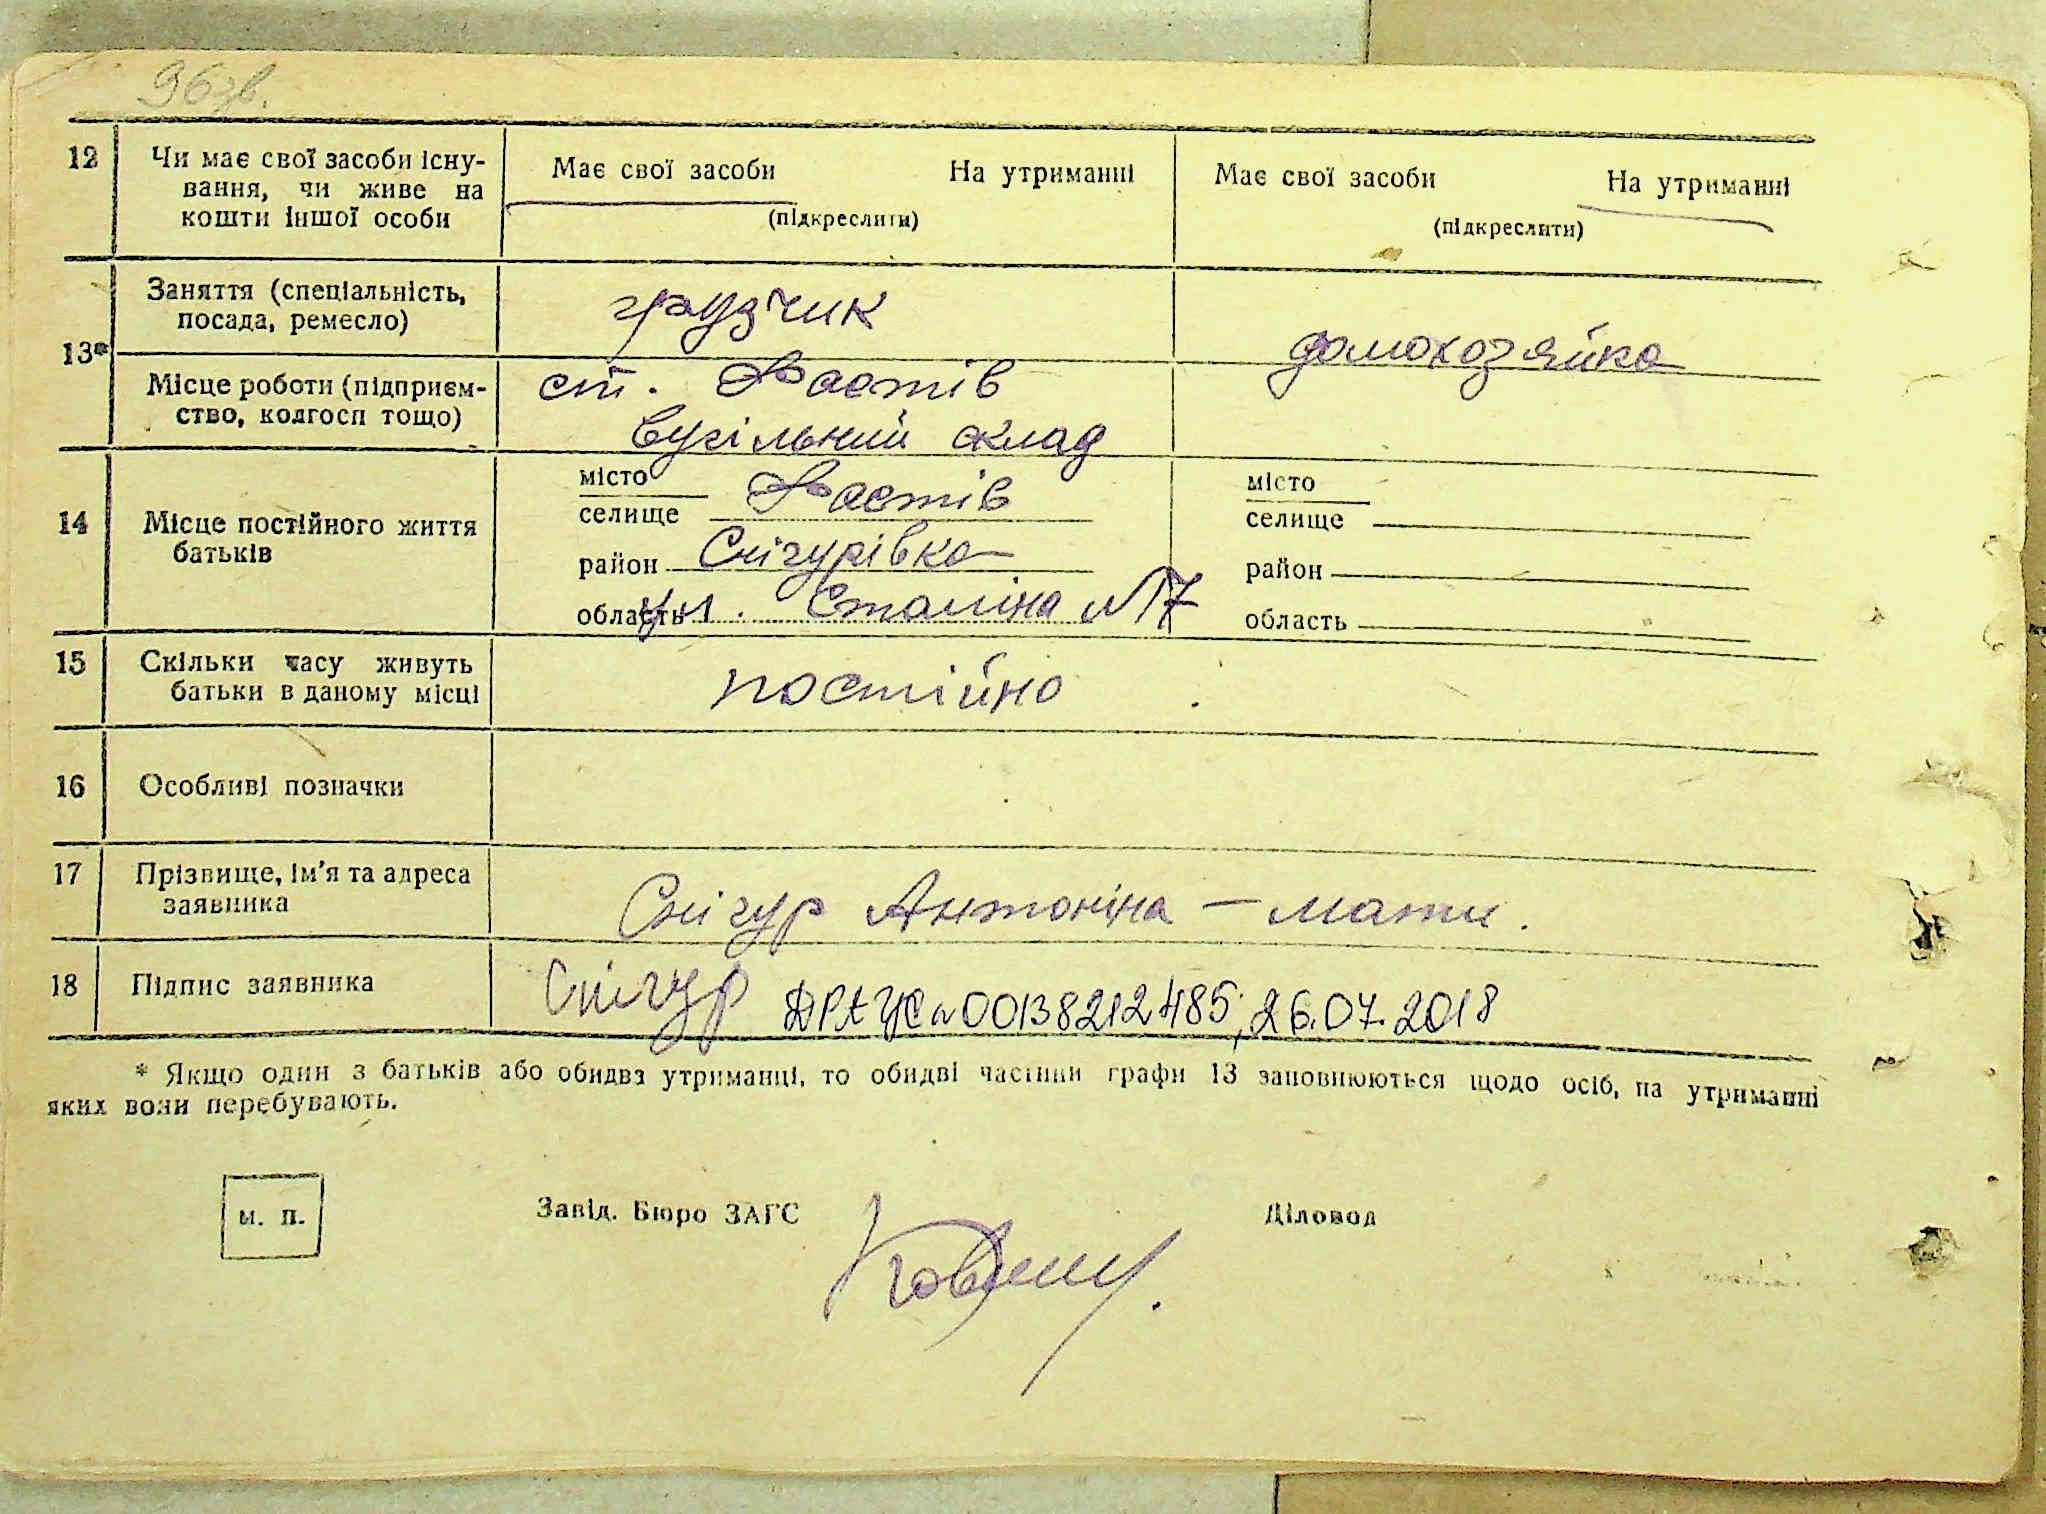 96 зв.
12 Чи має свої засоби існу- Має свої засоби На утриманні Має свої засоби На утриманні
вання, чи живе на
кошти іншої особи (підкреслити) (підкреслити)
13* Заняття (спеціальність, грузчик домохозяйка
посада, ремесло)
Місце роботи (підприєм- ст. Фастів
ство, колгосп тощо) вугільний склад
місто місто
14 Місце постійного життя селище Фастів селище
батьків район Снігурівка район
область ул. Сталіна №7 область
15 Скільки часу живуть постійно
батьки в даному місці
16 Особливі позначки
17 Прізвище, ім'я та адреса Снігур Антоніна – мати.
заявника
18 Підпис заявника Снігур ДРАЦС 00138212485; 26.07.2018
* Якщо один з батьків або обидва утриманці, то обидві частини графи 13 заповнюються щодо осіб, на утриманні
яких вони перебувають.
м. п. Завід. Бюро ЗАГС Діловод